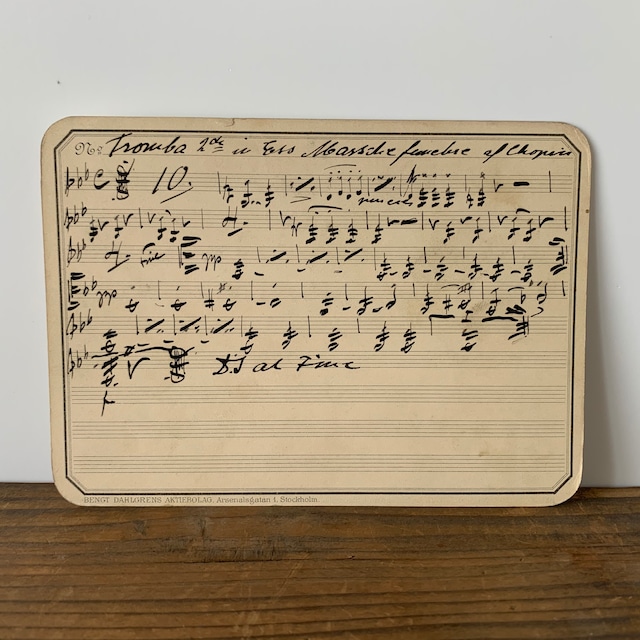 No. Tromba 2de in Ess Marsche funebre af Chopin
10.
4. Fine pp
pp
D.S al Fine
BENGT DAHLGRENS AKTIEBOLAG. Arsenalsgatan 1. Stockholm.